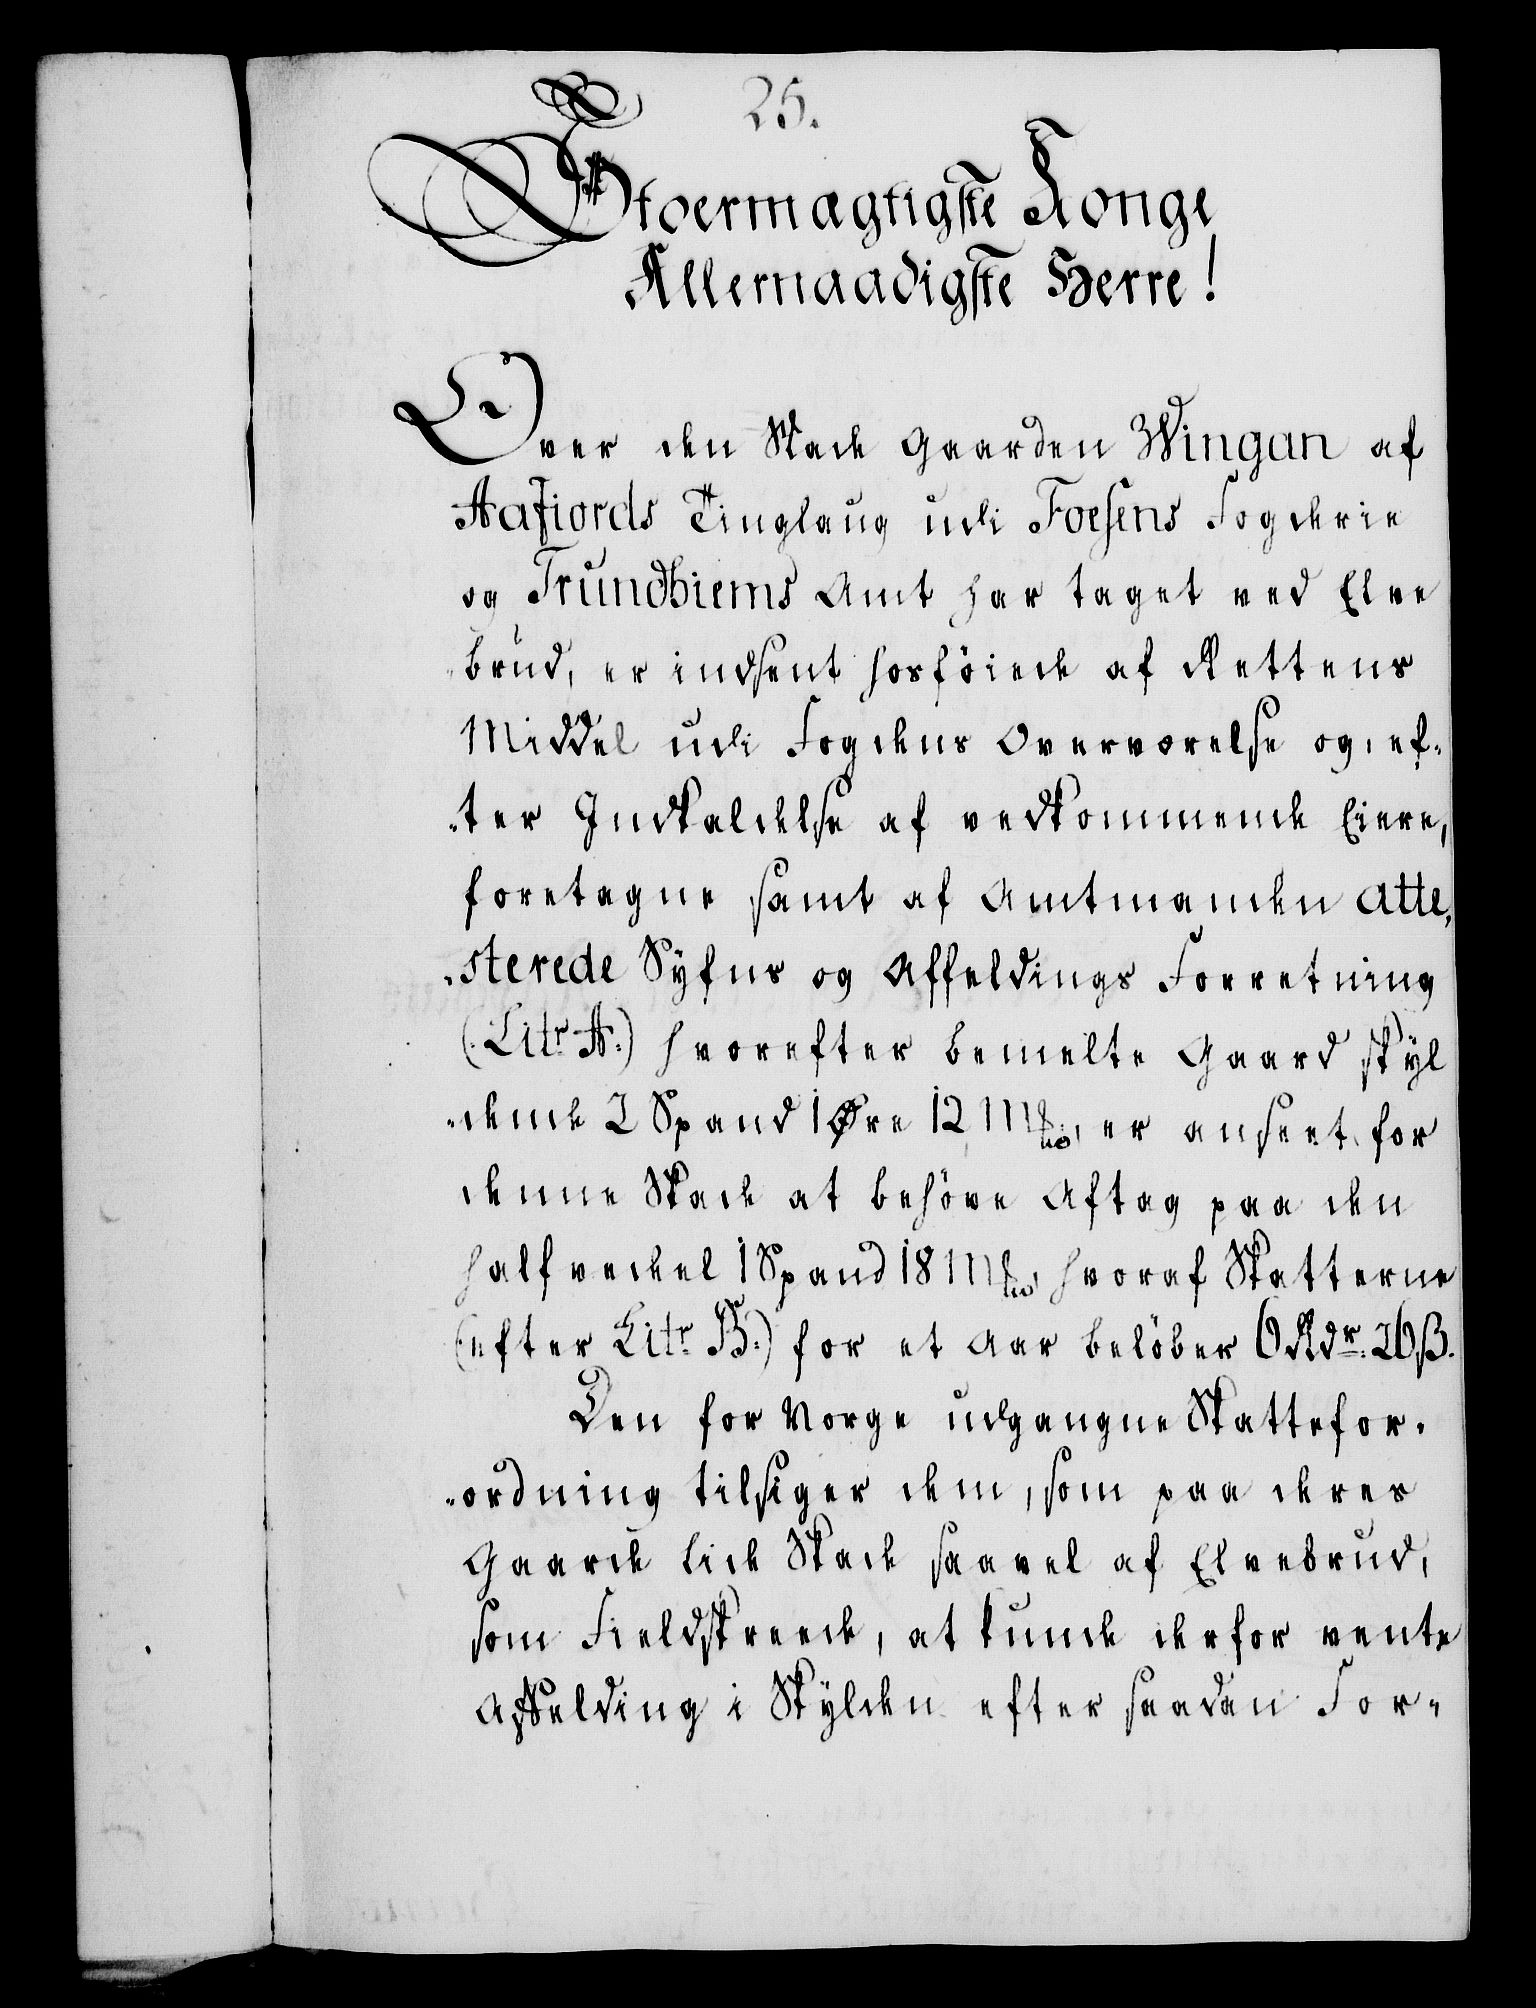 25.
Stoermægtigste Konge
Allernaadigste Herre!
Over den Skade Gaarden Wingan af
Aafiords Tinglaug udi Foesens Fogderie
og Trundhiems Amt har taget ved Elve
brud, er indsent hosföiede af Rettens
Middel udi Fogdens Overværelse og ef-
-ter Indkaldelse af vedkommende Eiere,
foretagne samt af Amtmanden atte,
-sterede Syfns og Affeldings Forretning
(Litr. A.) hvorefter bemelte Gaard skyl
-dende 2 Spand 1 Øre 12 Mkl:, er anseet for
denne Skade at behöve Aftag paa den
halfve deel 1 Spand 18 Mkl:, hvoraf Skatterne
(efter Litr. B:) for et Aar belöber 6 Rdr. 26 ß.
Den for Norge udgangne Skattefor-
-ordning tilsiger dem, som paa deres
Gaarde lide Skade saavel af Elvebrud,
som Fieldskreede, at kunde derfor vente
Affelding i Skylden efter saadan For-